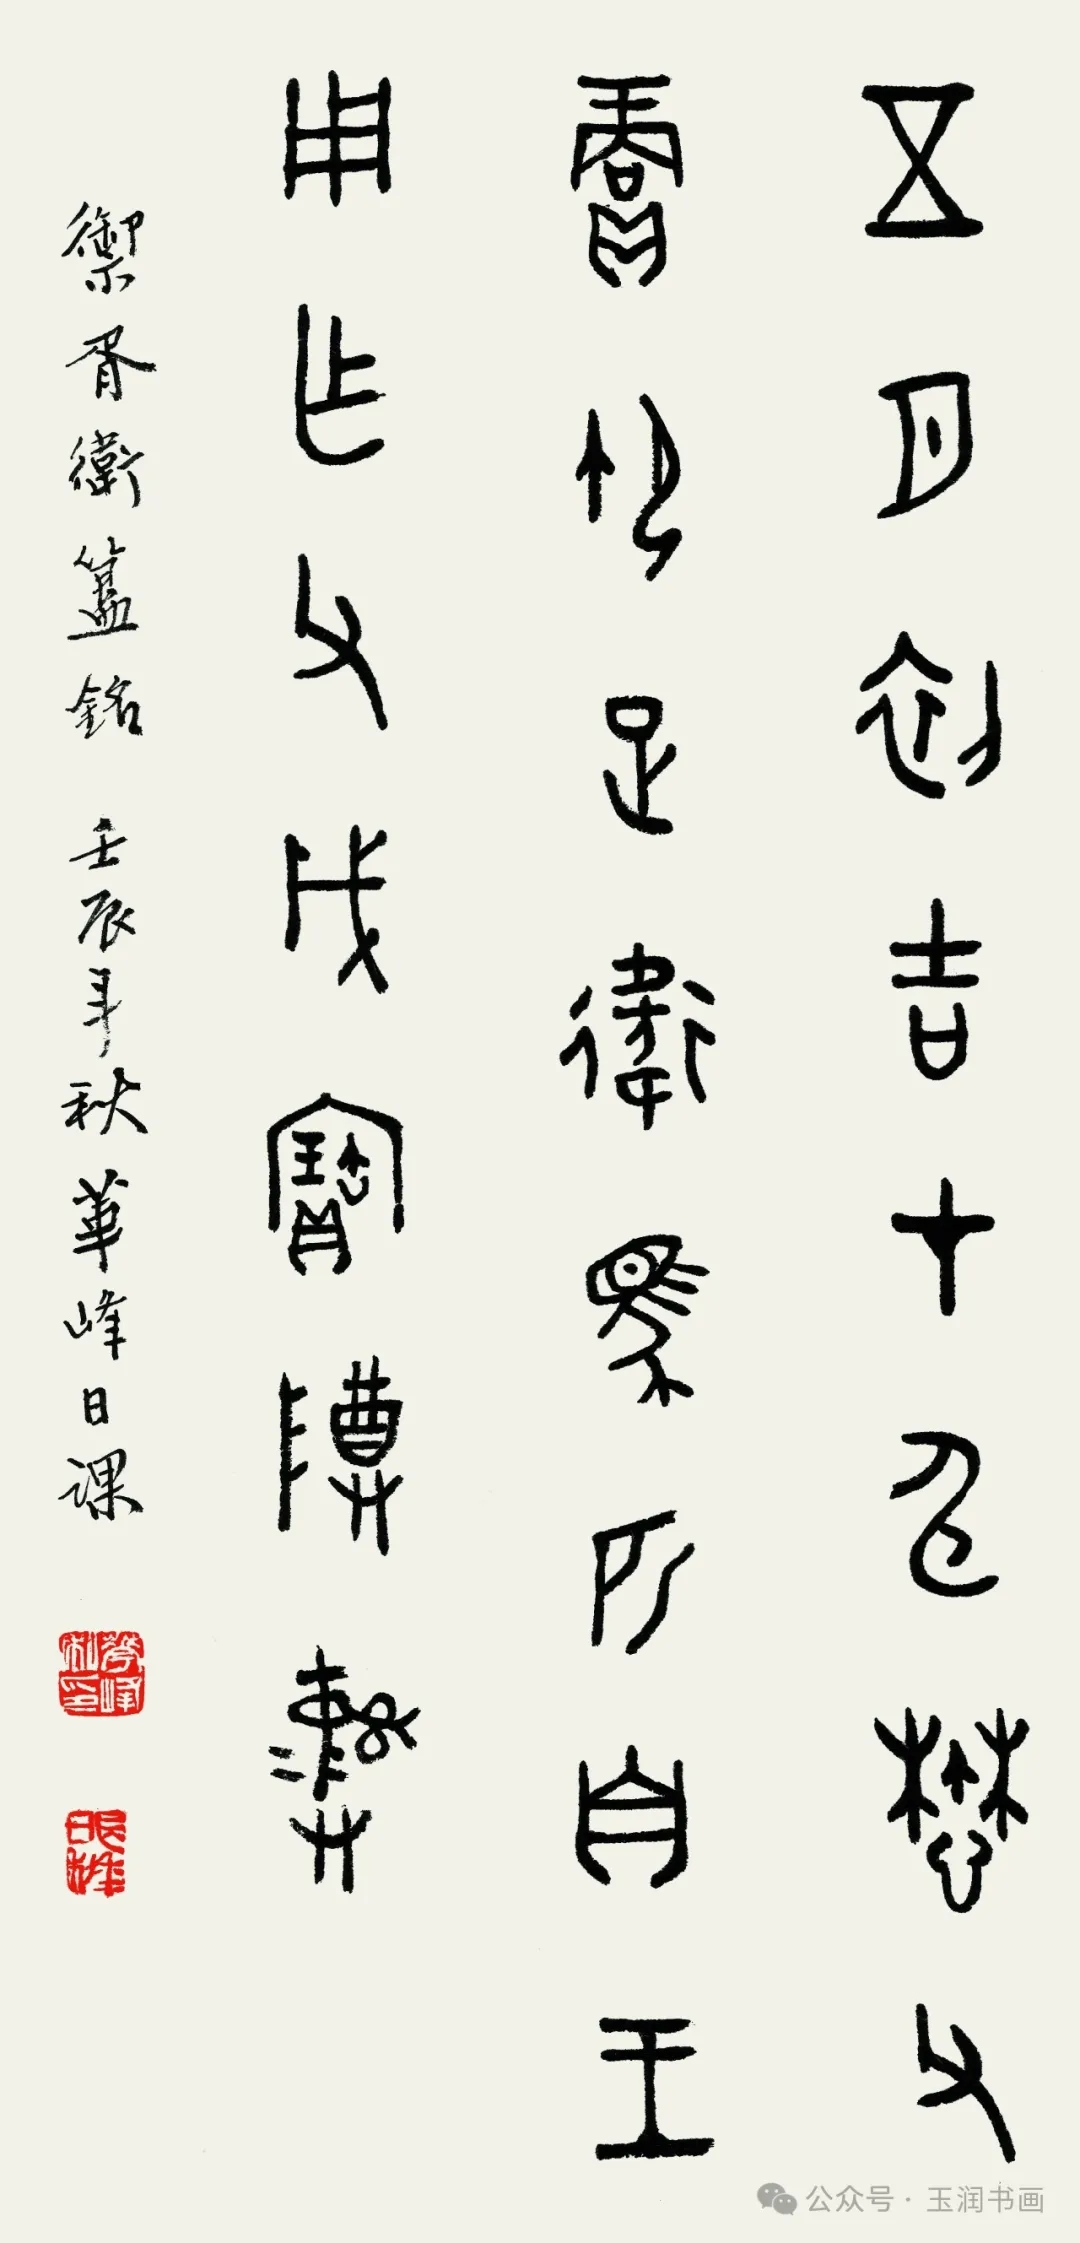 五月初吉甲申懋父
賞御正衛馬匹自王
用作父戊寶尊彝
禦胥衛簋銘 壬辰年秋華峰日課
華峰私印
公众号·玉润书画